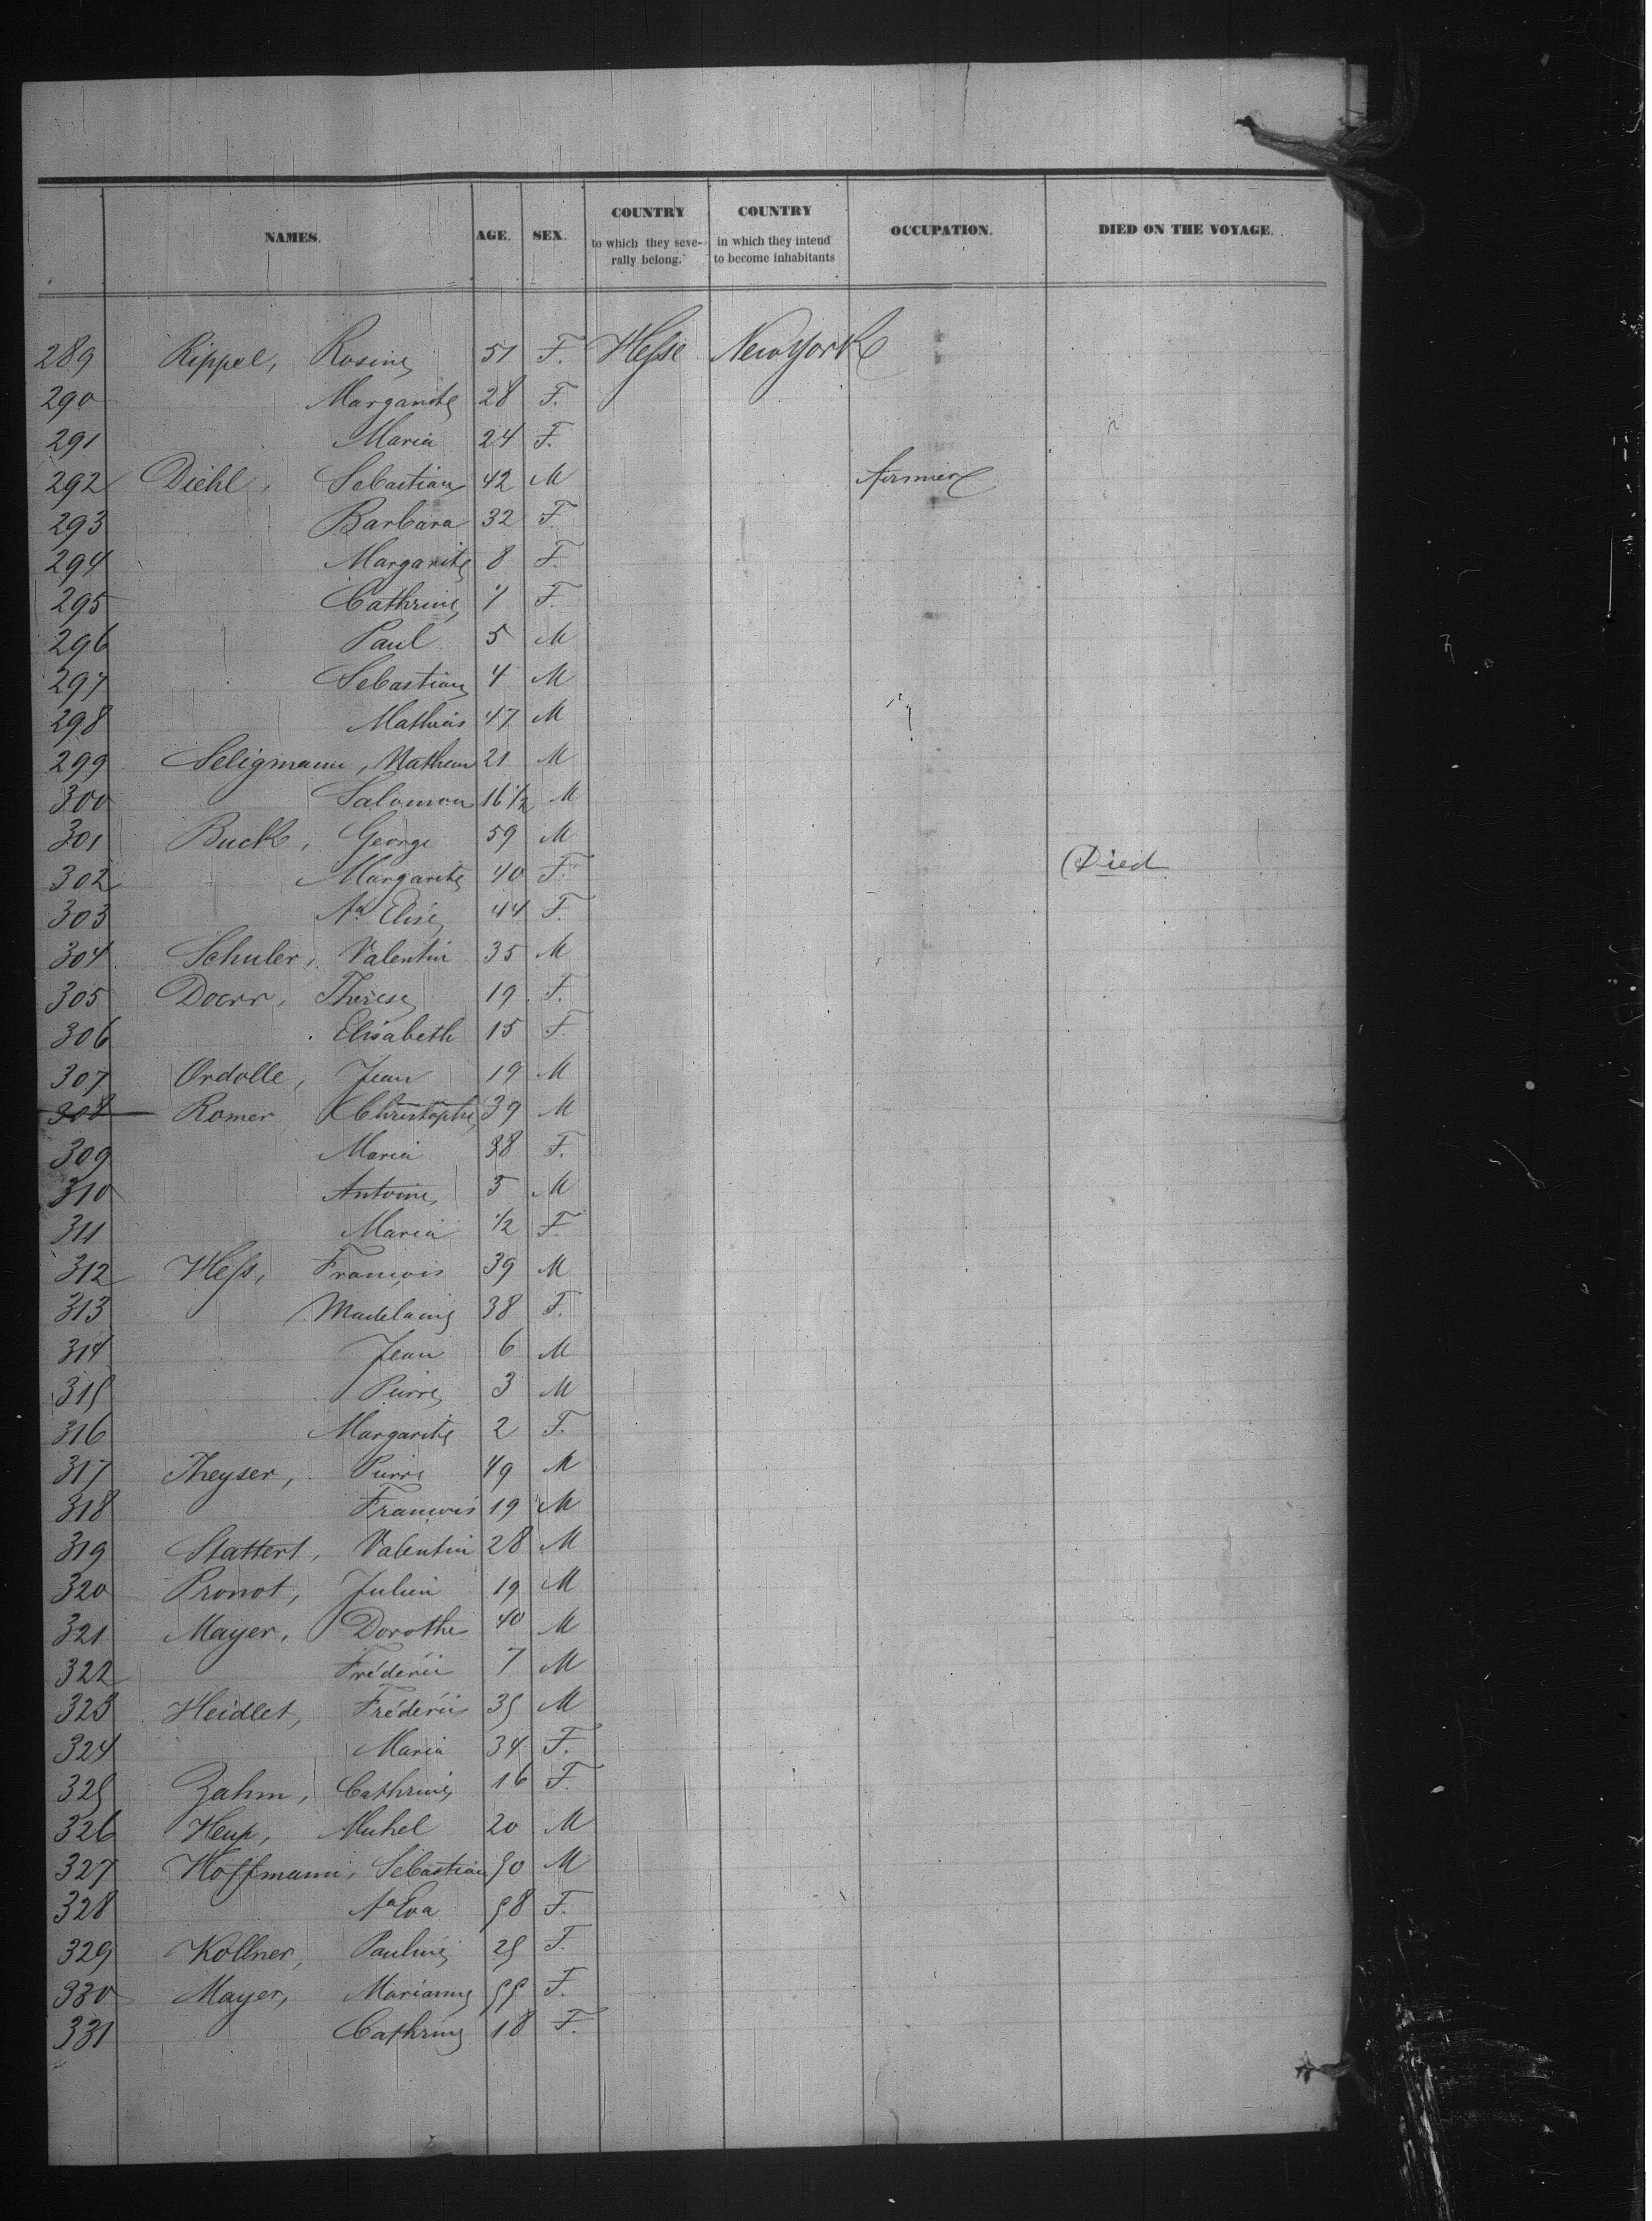 NAMES. AGE. SEX. COUNTRY to which they severally belong. COUNTRY in which they intend to become inhabitants OCCUPATION. DIED ON THE VOYAGE.
289 Rippel, Rosine 51 F. Hesse New York
290 Margarite 28 F.
291 Maria 24 F.
292 Diehl, Sebastian 42 M farmer
293 Barbara 32 F.
294 Margarite 8 F.
295 Cathrine 7 F.
296 Paul 5 M
297 Sebastian 4 M
298 Mathias 47 M
299 Seligmann, Nathan 21 M
300 Salomon 16 1/2 M
301 Buck, George 59 M
302 Margarite 40 F. Died
303 Aa Elise 44 F.
304 Schuler, Valentin 35 M
305 Doerr, Therese 19 F.
306 Elisabeth 15 F.
307 Ordolle, Jean 19 M
308 Romer Christophe 39 M
309 Maria 38 F.
310 Antoine 5 M
311 Maria 1/2 F.
312 Hess, François 39 M
313 Madelaine 38 F.
314 Jean 6 M
315 Pierre 3 M
316 Margarite 2 F.
317 Theyser, Pierre 49 M
318 François 19 M
319 Stattert, Valentin 28 M
320 Pronot, Julien 19 M
321 Mayer, Dorothe 40 M
322 Fréderic 7 M
323 Heidlet, Fréderic 35 M
324 Maria 34 F.
325 Zahm, Cathrine 16 F.
326 Michel 20 M
327 Hoffmann, Sebastian 50 M
328 Aa Eva 58 F.
329 Kollner, Pauline 25 F.
330 Mayer, Marianne 55 F.
331 Cathrine 18 F.